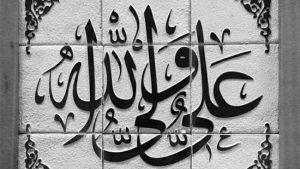 علی ولی الله